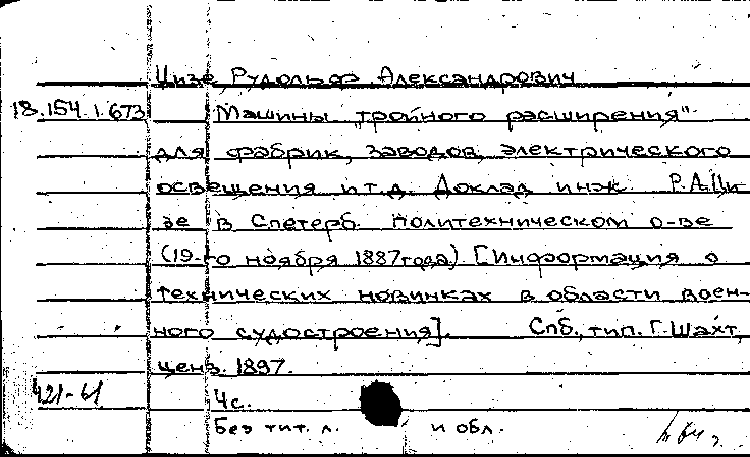 Цизе Рудольф Александрович
18.154.1.673 Машины „тройного расширения"
для фабрик, заводов, электрического
освещения и т.д. Доклад инж. Р.А.Ци
зе в Спетерб. политехническом о-ве
(19-го ноября 1887 года). [Информация о
технических новинках в области воен-
ного судостроения]. Спб., тип. Г. Шахт,
ценз. 1897.
421-61
4 с.
Без тит. л. и обл.